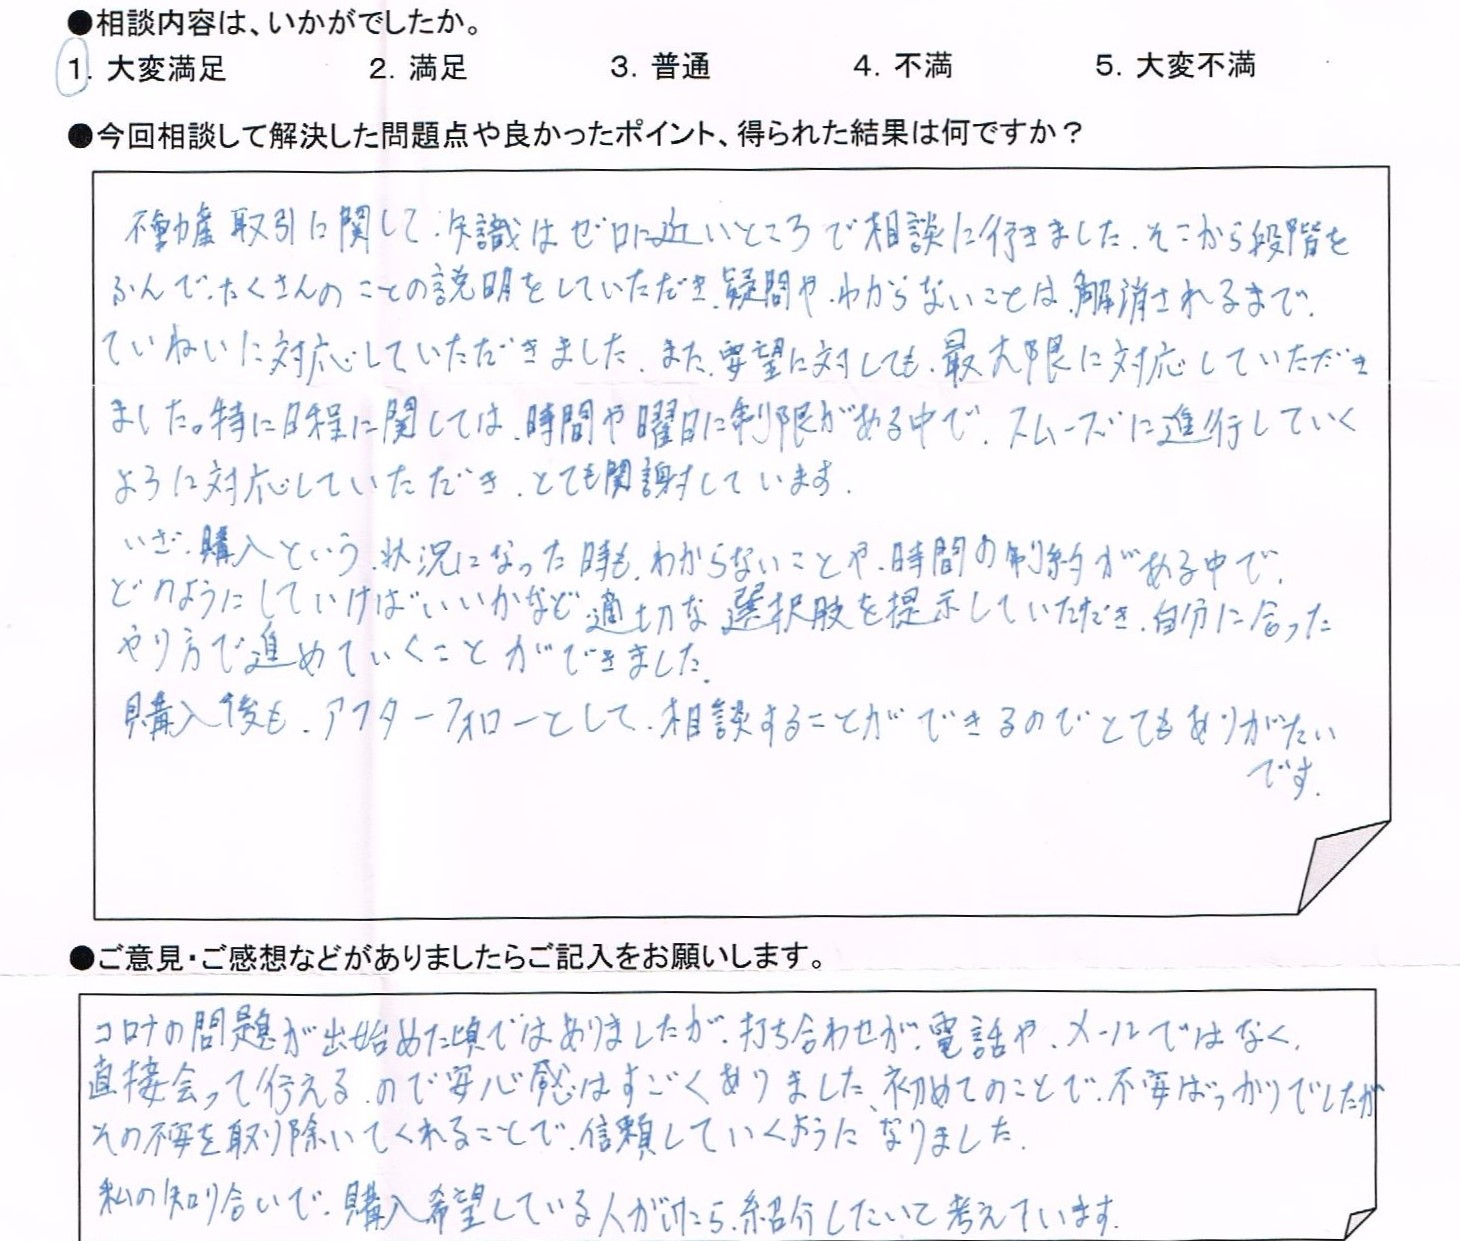 ●相談内容は、いかがでしたか。
1. 大変満足 2. 満足 3. 普通 4. 不満 5. 大変不満
●今回相談して解決した問題点や良かったポイント、得られた結果は何ですか？
不動産取引に関して、知識はゼロに近いところで相談に行きました。そこから段階を
ふんで、たくさんのことの説明をしていただき、疑問や、わからないことは、解消されるまで、
ていねいに対応していただきました。また、要望に対しても、最大限に対応していただき
ました。特に日程に関しては、時間や曜日に制限がある中で、スムーズに進行していく
ように対応していただき、とても関謝しています。
いざ、購入という、状況になった時も、わからないことや、時間の制約がある中で、
どのようにしていけばいいかなど適切な選択肢を提示していただき、自分に合った
やり方で進めていくことができました。
購入後も、アフターフォローとして、相談することができるのでとてもありがたい
です。
●ご意見・ご感想などがありましたらご記入をお願いします。
コロナの問題が出始めた頃ではありましたが、打ち合わせが、電話や、メールではなく、
直接会って行えるので安心感はすごくありました、初めてのことで、不安ばっかりでしたが
その不安を取り除いてくれることで、信頼していくようになりました。
私の知り合いで、購入希望している人がいたら、紹介したいと考えています。